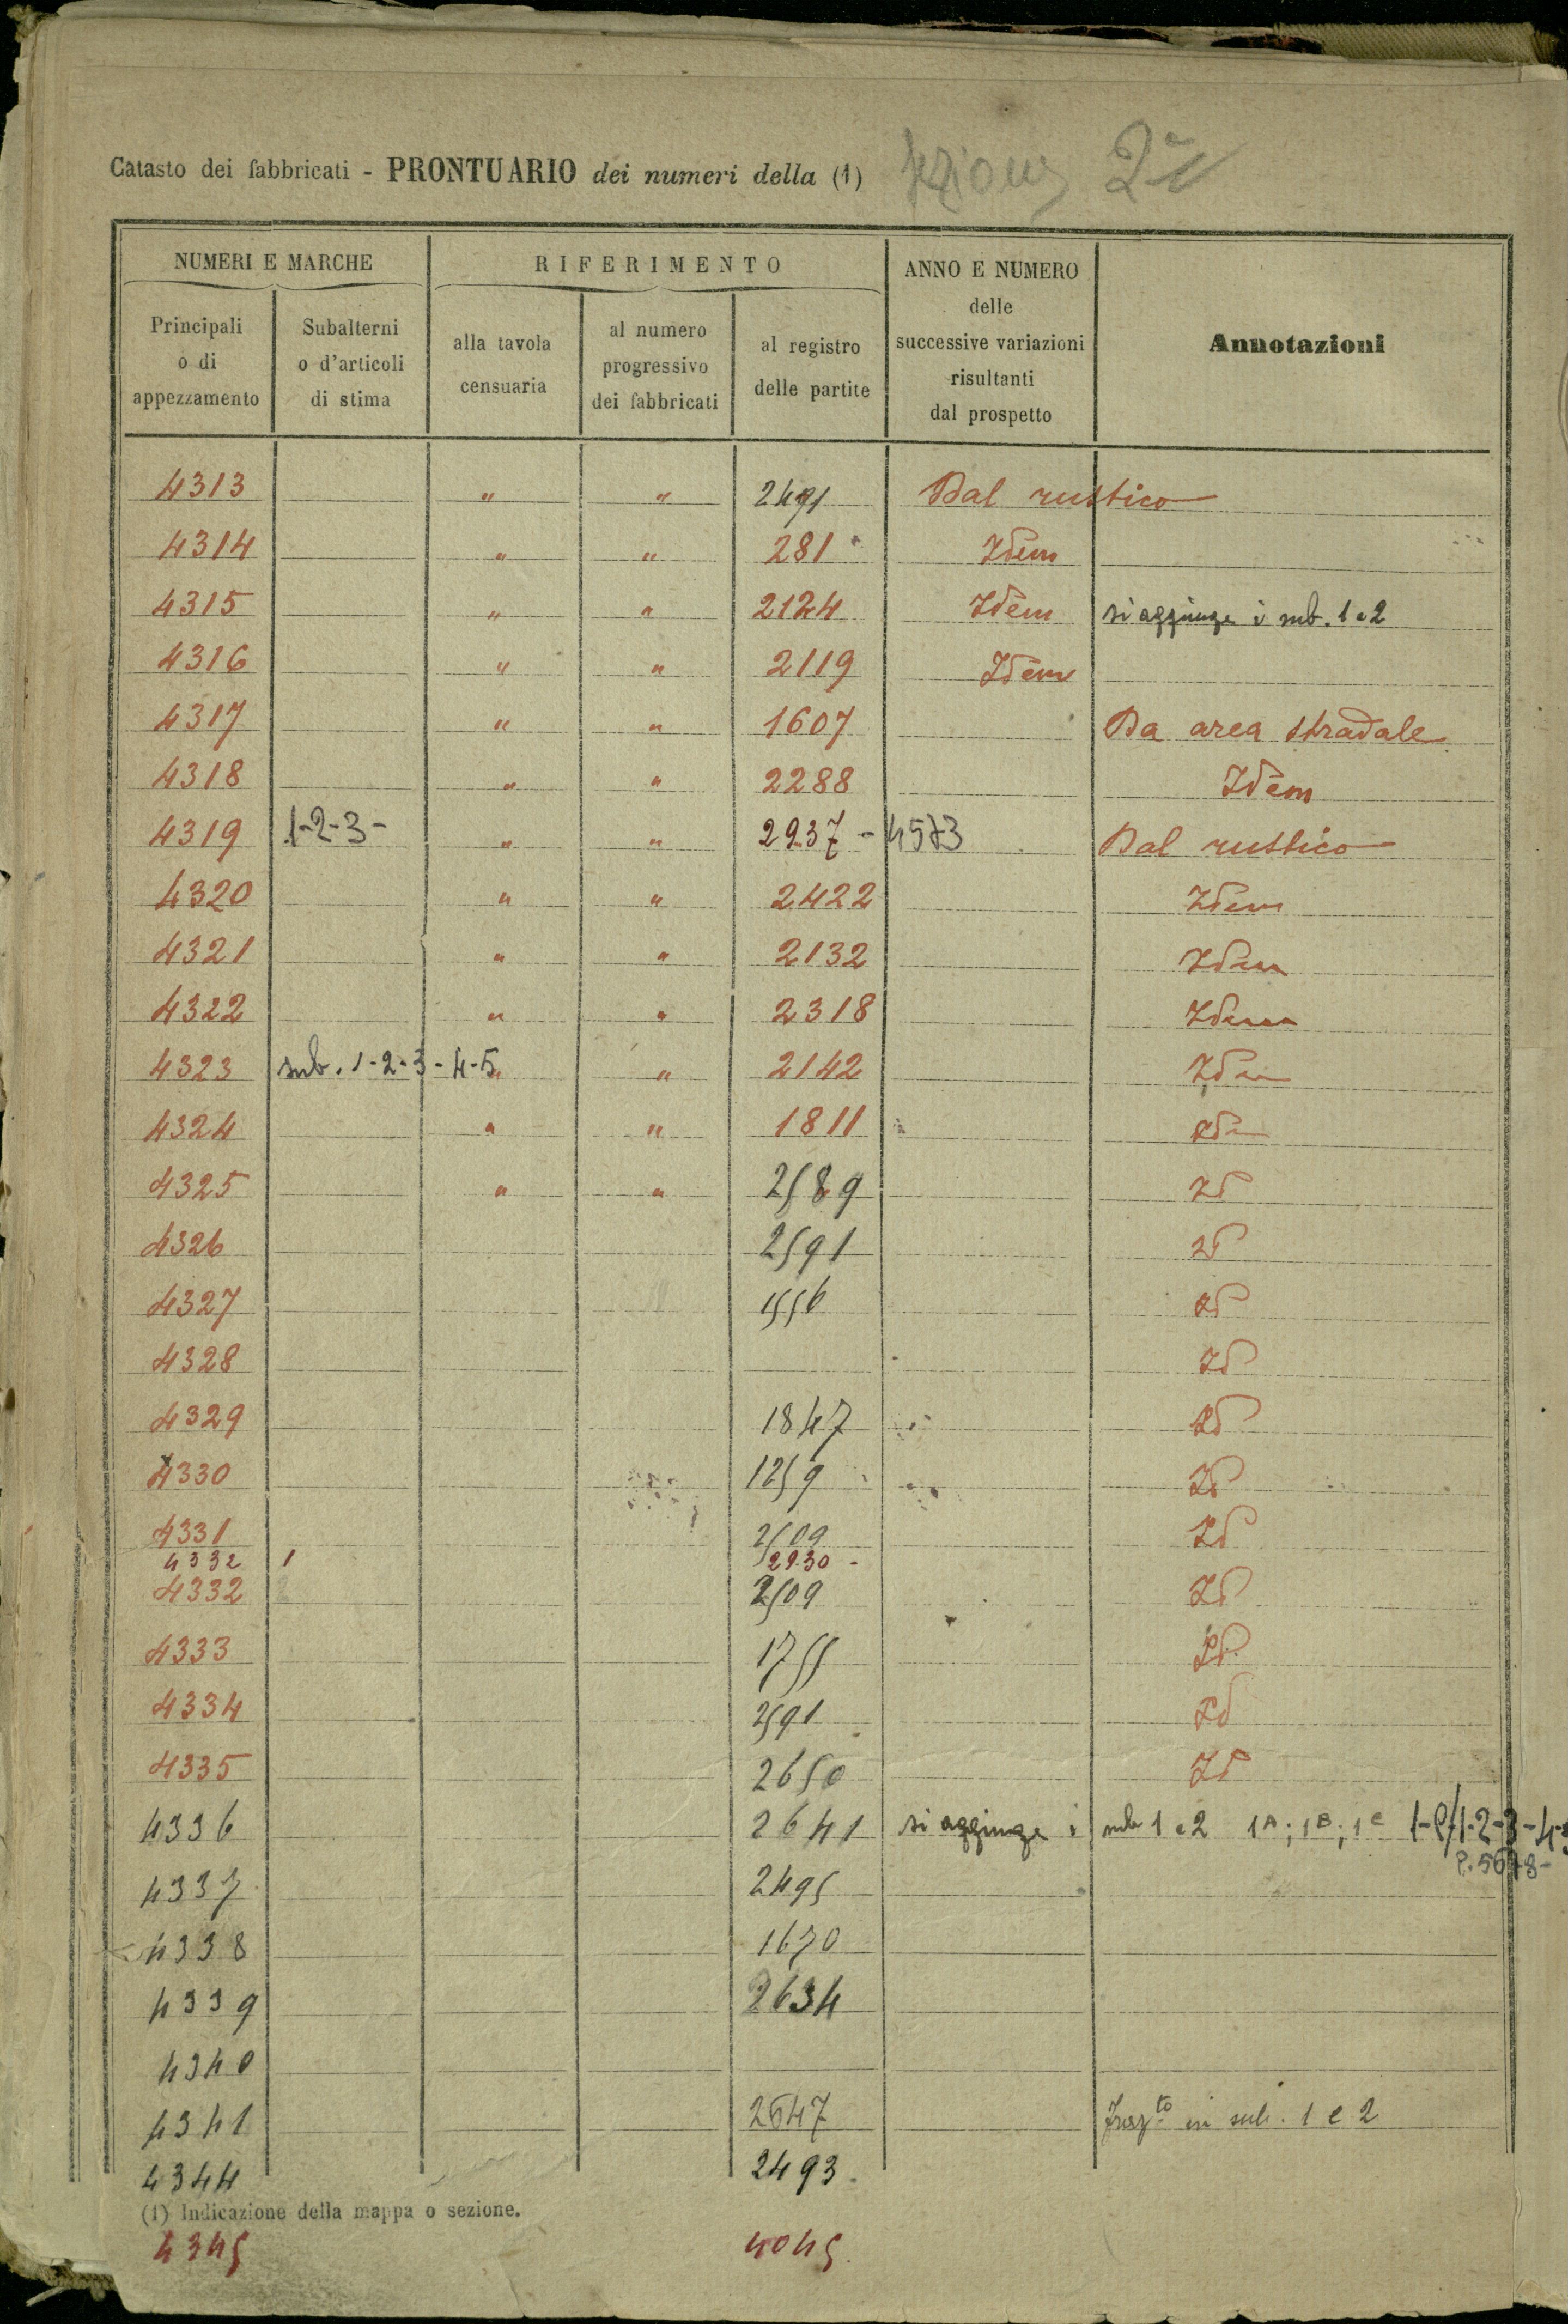 Catasto dei fabbricati - PRONTUARIO dei numeri della (1) sezione 2ª
NUMERI E MARCHE
RIFERIMENTO
ANNO E NUMERO
delle
successive variazioni
risultanti
dal prospetto
Annotazioni
Principali
o di
appezzamento
Subalterni
o d'articoli
di stima
alla tavola
censuaria
al numero
progressivo
dei fabbricati
al registro
delle partite
4313 " " 2491 Dal rustico
4314 " " 281 Idem
4315 " " 2124 Idem si aggiunge i sub. 1 e 2
4316 " " 2119 Idem
4317 " " 1607 Da area stradale
4318 " " 2288 Idem
4319 1-2-3- " " 2937 - 4573 Dal rustico
4320 " " 2422 Idem
4321 " " 2132 Idem
4322 " " 2318 Idem
4323 sub. 1-2-3-4-5 " " 2142 Idem
4324 " " 1811 Idem
4325 " " 2589 Id
4326 2591 Id
4327 1556 Id
4328 Id
4329 1847 Id
4330 1259 Id
4331 2509 Id
4332 1 2930 -
4332 2509 Id
4333 1755 Id.
4334 2591 Id
4335 2650 Id
4336 2641 si aggiunge i sub 1 e 2 1A; 1B; 1C 1-2-3-4-
P. 5678-
4337 2495
4338 1670
4339 2634
4340
4341 2647 in sub. 1 e 2
4344 2493.
(1) Indicazione della mappa o sezione.
4345 4045.